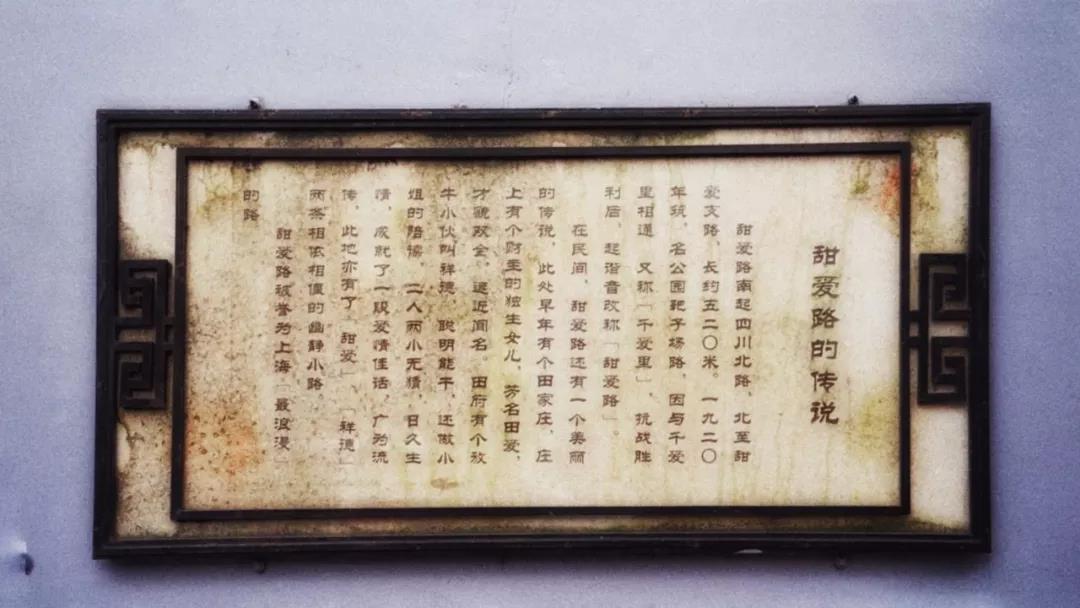 甜爱路的传说
甜爱路南起四川北路，北至甜
爱支路，长约五二〇米。一九二〇
年筑，名公园靶子场路，因与千爱
里相通，又称「千爱里」，抗战胜
利后，起谐音改称「甜爱路」。
在民间，甜爱路还有一个美丽
的传说，此处早年有个田家庄，庄
上有个财主的独生女儿，芳名田爱，
才貌双全，遐近闻名。田府有个放
牛小伙叫祥德，聪明能干，还做小
姐的陪读，二人两小无猜，日久生
情，成就了一段爱情佳话，广为流
传，此地亦有了「甜爱」、「祥德」
两条相依相偎的幽静小路
甜爱路被誉为上海「最浪漫」
的路